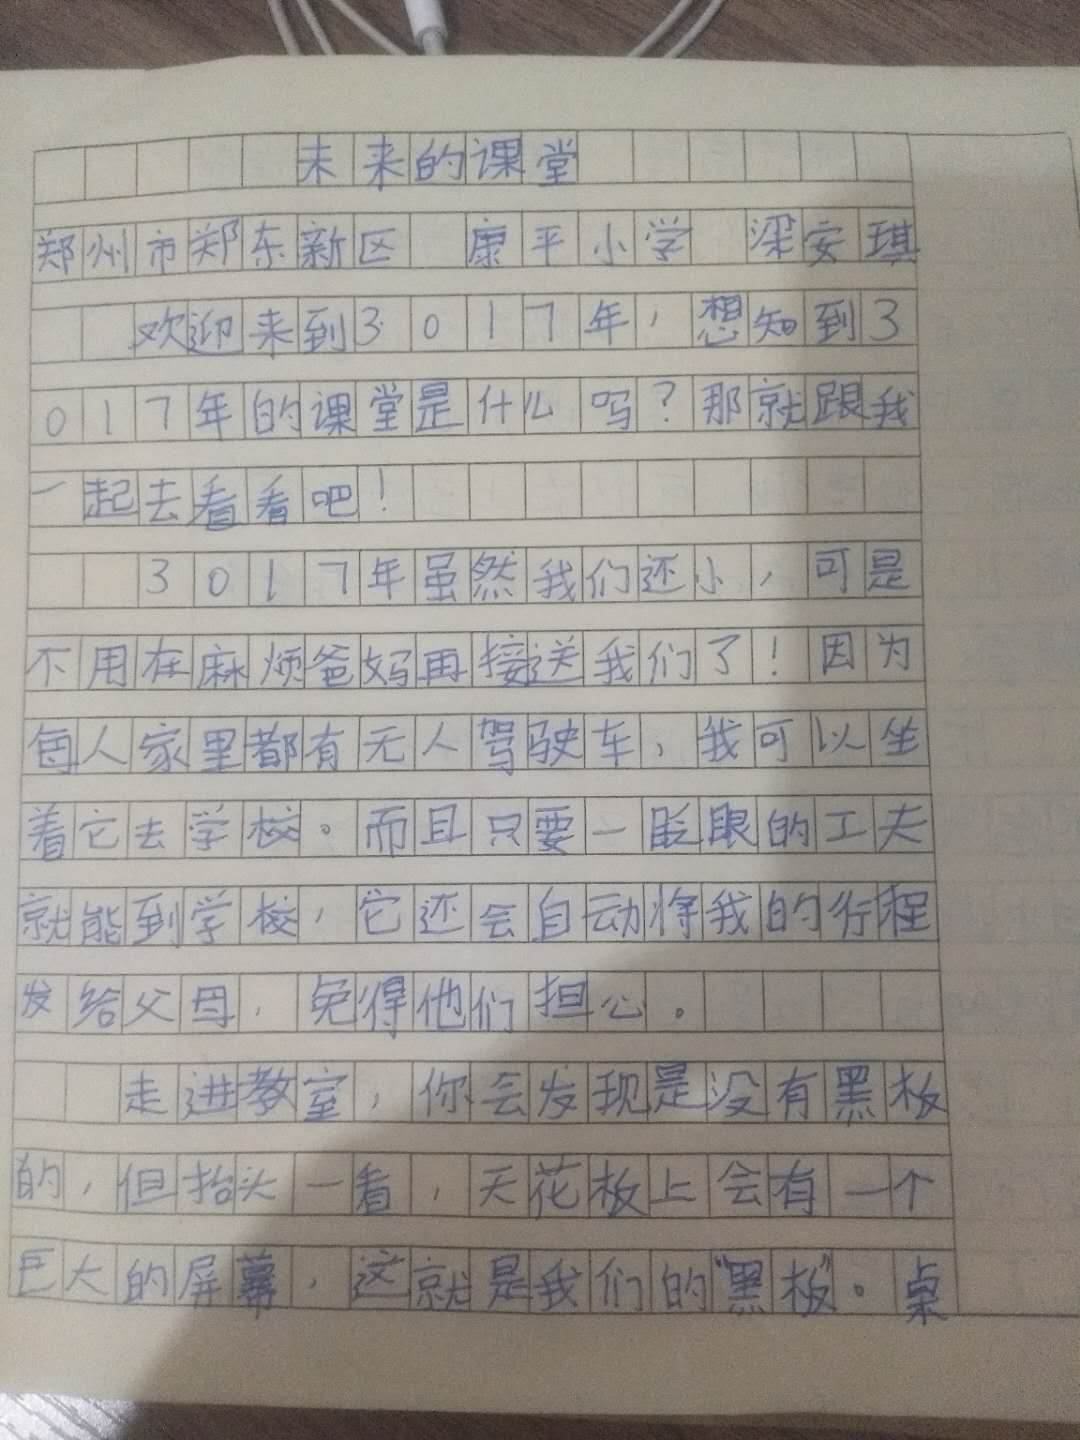 未来的课堂
郑州市郑东新区 康平小学 梁安琪
欢迎来到3017年，想知到3
017年的课堂是什么吗？那就跟我
一起去看看吧！
3017年虽然我们还小，可是
不用在麻烦爸妈再接送我们了！因为
每人家里都有无人驾驶车，我可以坐
着它去学校。而且只要一眨眼的工夫
就能到学校，它还会自动将我的行程
发给父母，免得他们担心。
走进教室，你会发现是没有黑板
的，但抬头一看，天花板上会有一个
巨大的屏幕，这就是我们的“黑板”。桌